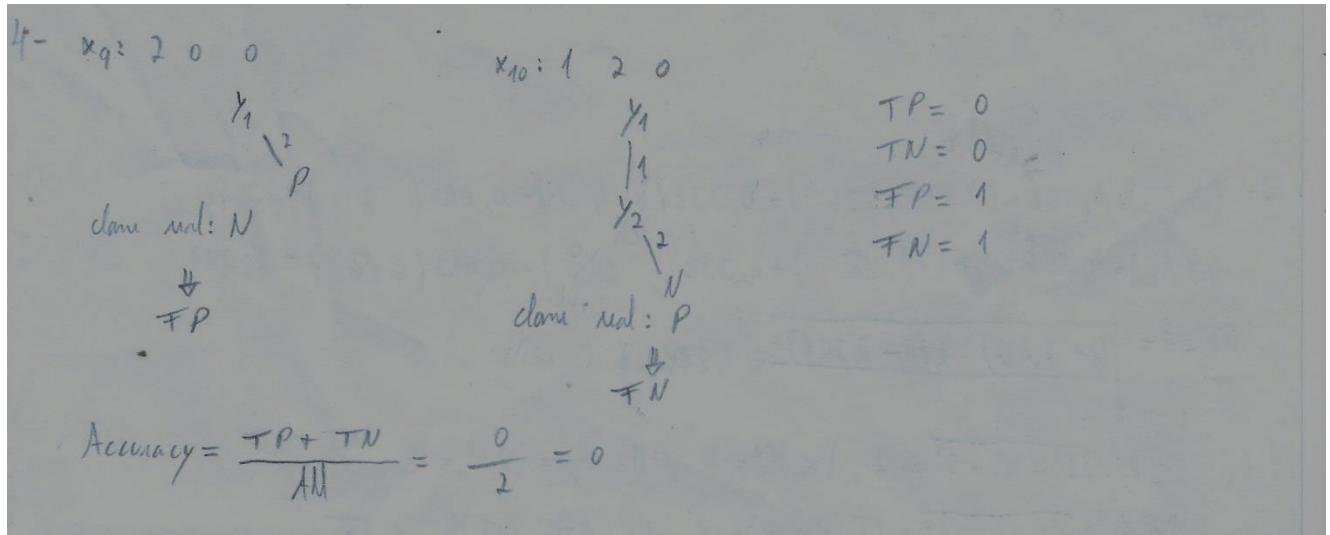 4- x9: 2 0 0
y1
2
P
classe real: N
⇓
FP
x10: 1 2 0
y1
1
y2
2
N
classe real: P
⇓
FN
TP = 0
TN = 0
FP = 1
FN = 1
Accuracy = TP + TN / All = 0 / 2 = 0